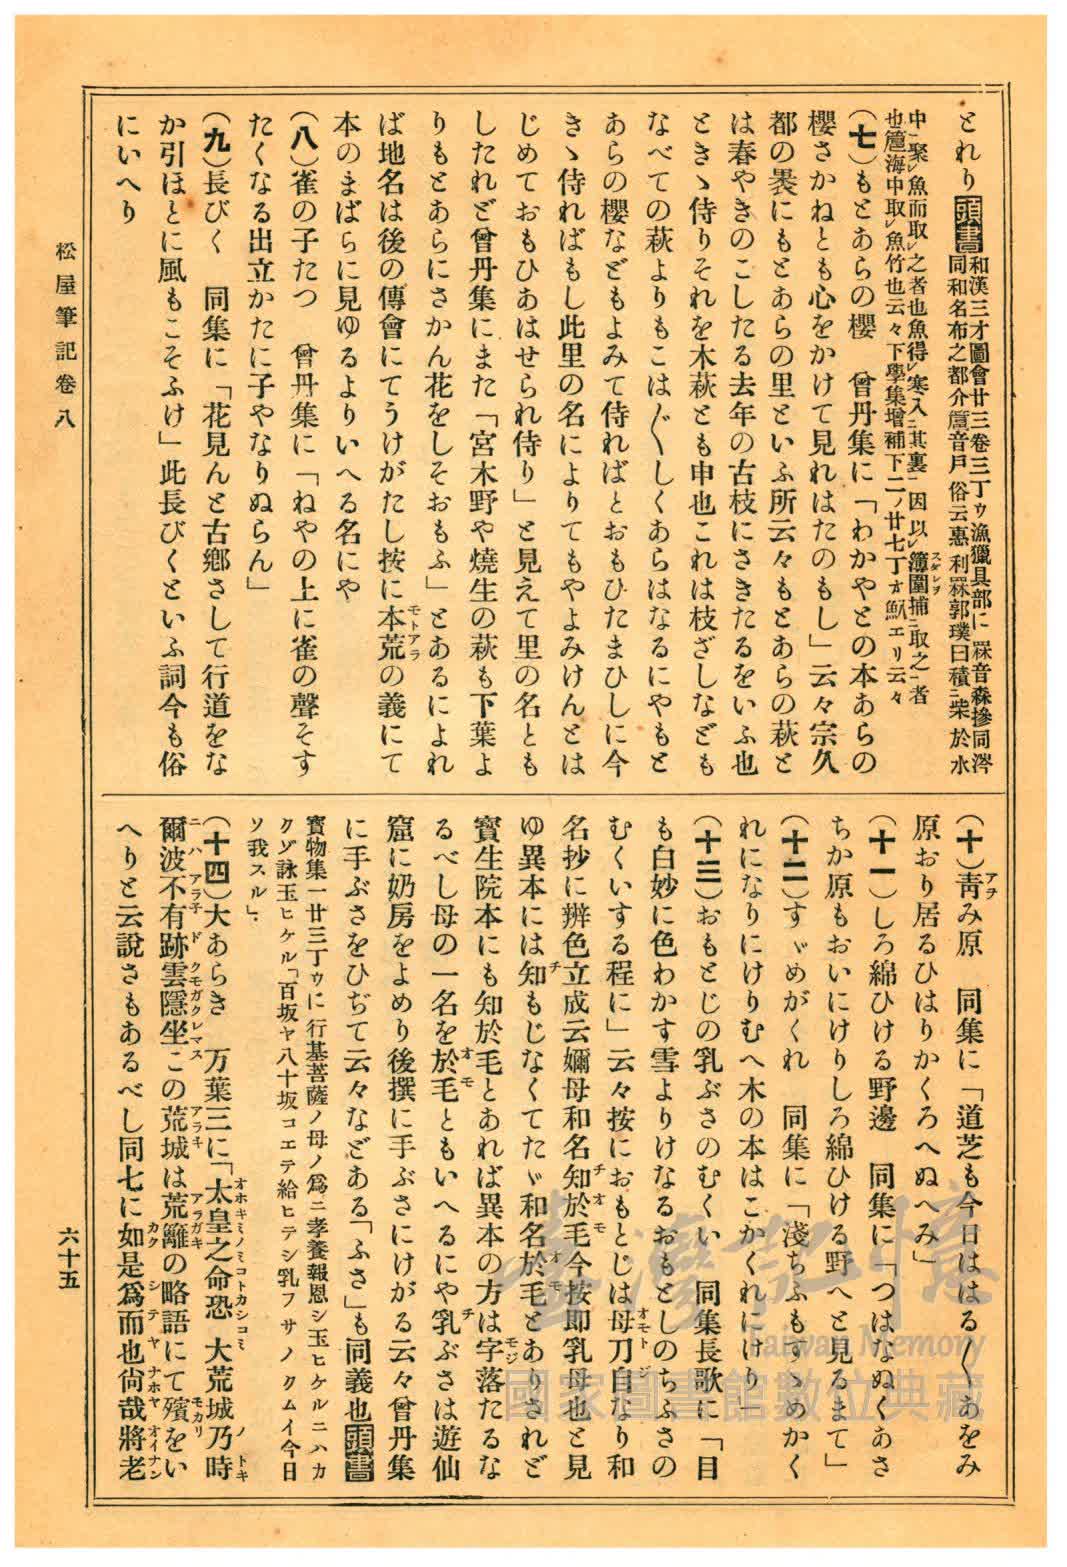 とれり頭書和漢三才圖會廿三卷三丁ゥ漁獵具部に罧音森摻同涔
同和名布之都介䉤音戸俗云惠利罧郭璞曰積ニ柴於水
中ニ聚レ魚而取レ之者也魚得レ寒入ニ其裏ニ因以レ簿圍捕ニ取之ニ者スダレヲ
也䉤海中取レ魚竹也云々下學集增補下二ノ廿七丁ォ魞エリ云々
(七)もとあらの櫻　曾丹集に「わかやとの本あらの
櫻さかねとも心をかけて見れはたのもし」云々宗久
都の裠にもとあらの里といふ所云々もとあらの萩と
は春やきのこしたる去年の古枝にさきたるをいふ也
ときゝ侍りそれを木萩とも申也これは枝ざしなども
なべての萩よりもこは〳〵しくあらはなるにやもと
あらの櫻などもよみて侍ればとおもひたまひしに今
きゝ侍ればもし此里の名によりてもやよみけんとは
じめておもひあはせられ侍り」と見えて里の名とも
したれど曾丹集にまた「宮木野や燒生の萩も下葉よ
りもとあらにさかん花をしそおもふ」とあるによれ
ば地名は後の傳會にてうけがたし按に本荒モトアラの義にて
本のまばらに見ゆるよりいへる名にや
(八)雀の子たつ　曾丹集に「ねやの上に雀の聲そす
たくなる出立かたに子やなりぬらん」
(九)長びく　同集に「花見んと古鄕さして行道をな
か引ほとに風もこそふけ」此長びくといふ詞今も俗
にいへり
(十)靑アヲみ原　同集に「道芝も今日ははる〳〵あをみ
原おり居るひはりかくろへぬへみ」
(十一)しろ綿ひける野邊　同集に「つはなぬくあさ
ちか原もおいにけりしろ綿ひける野へと見るまて」
(十二)すゞめがくれ　同集に「淺ちふもすゝめかく
れになりにけりむへ木の本はこかくれにけり」
(十三)おもとじの乳ぶさのむくい　同集長歌に「目
も白妙に色わかす雪よりけなるおもとしのちふさの
むくいする程に」云々按におもとじは母刀自オモトジなり和
名抄に辨色立成云嬭母和名知於毛チオモ今按即乳母也と見
ゆ異本には知チもじなくてたゞ和名於毛オモとありされど
寶生院本にも知於毛とあれば異本の方は字モジ落たるな
るべし母の一名を於毛オモともいへるにや乳チぶさは遊仙
窟に奶房をよめり後撰に手ぶさにけがる云々曾丹集
に手ぶさをひぢて云々などある「ふさ」も同義也頭書
寶物集一廿三丁ゥに行基菩薩ノ母ノ爲ニ孝養報恩シ玉ヒケルニハカ
クゾ詠玉ヒケル「百坂ヤ八十坂コエテ給ヒテシ乳フサノクムイ今日
ソ我スル」
(十四)大あらき　万葉三に「太皇之命恐オホキミノミコトカシコミ大荒城乃時ノトキ
爾波不有跡ニハアラネド雲隱坐クモガクレマスこの荒城アラキは荒籬アラガキの略語にて殯モカリをい
へりと云說さもあるべし同七に如是カク爲而也シテヤ尙哉ナホヤ將老オイナン
松屋筆記卷八
六十五
臺灣記憶
Taiwan Memory
國家圖書館數位典藏